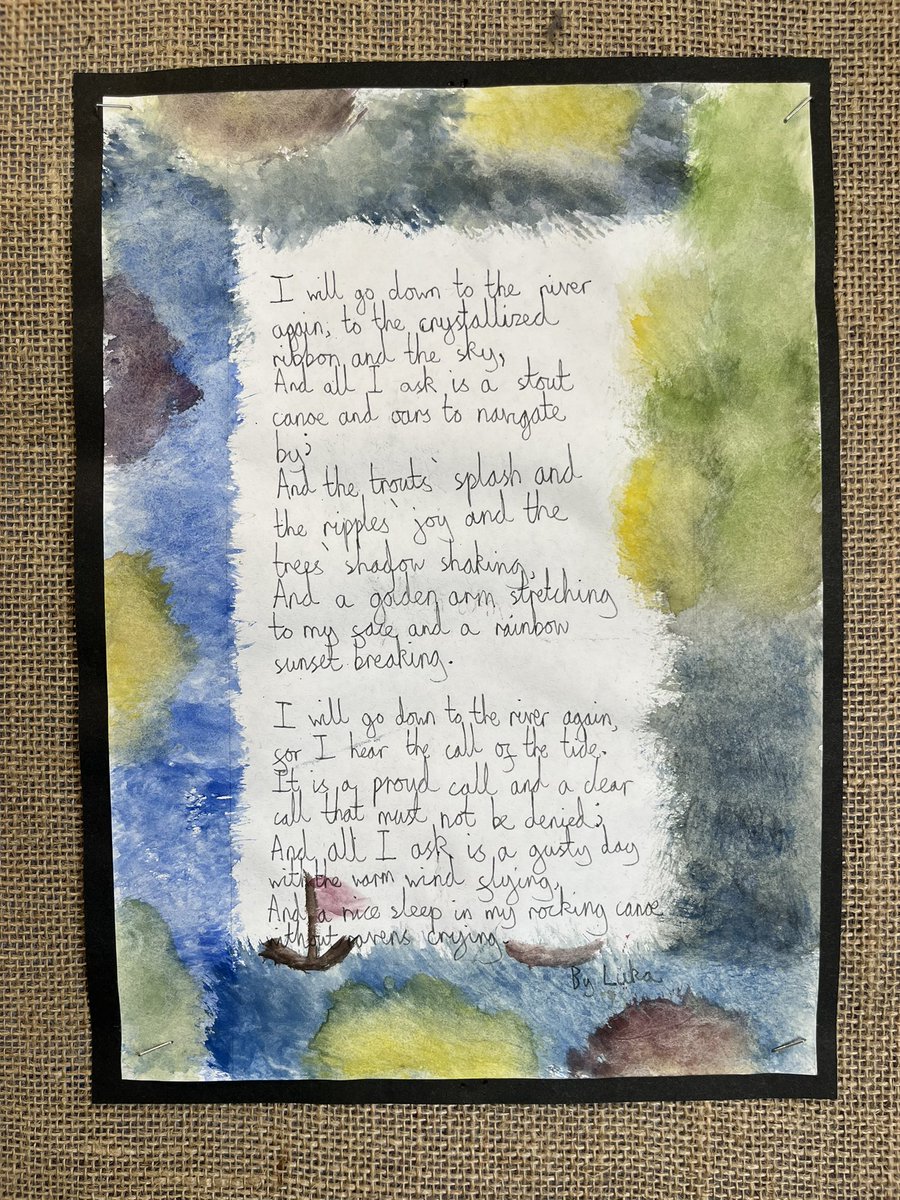 I will go down to the river
again, to the crystallized
ribbon and the sky,
And all I ask is a stout
canoe and oars to navigate
by;
And the trouts' splash and
the ripples' joy and the
trees' shadow shaking,
And a golden arm stretching
to my gate and a rainbow
sunset breaking.
I will go down to the river again,
for I hear the call of the tide.
It is a proud call and a clear
call that must not be denied;
And all I ask is a gusty day
with the warm wind flying,
And a nice sleep in my rocking canoe
without ravens crying.
By Luka